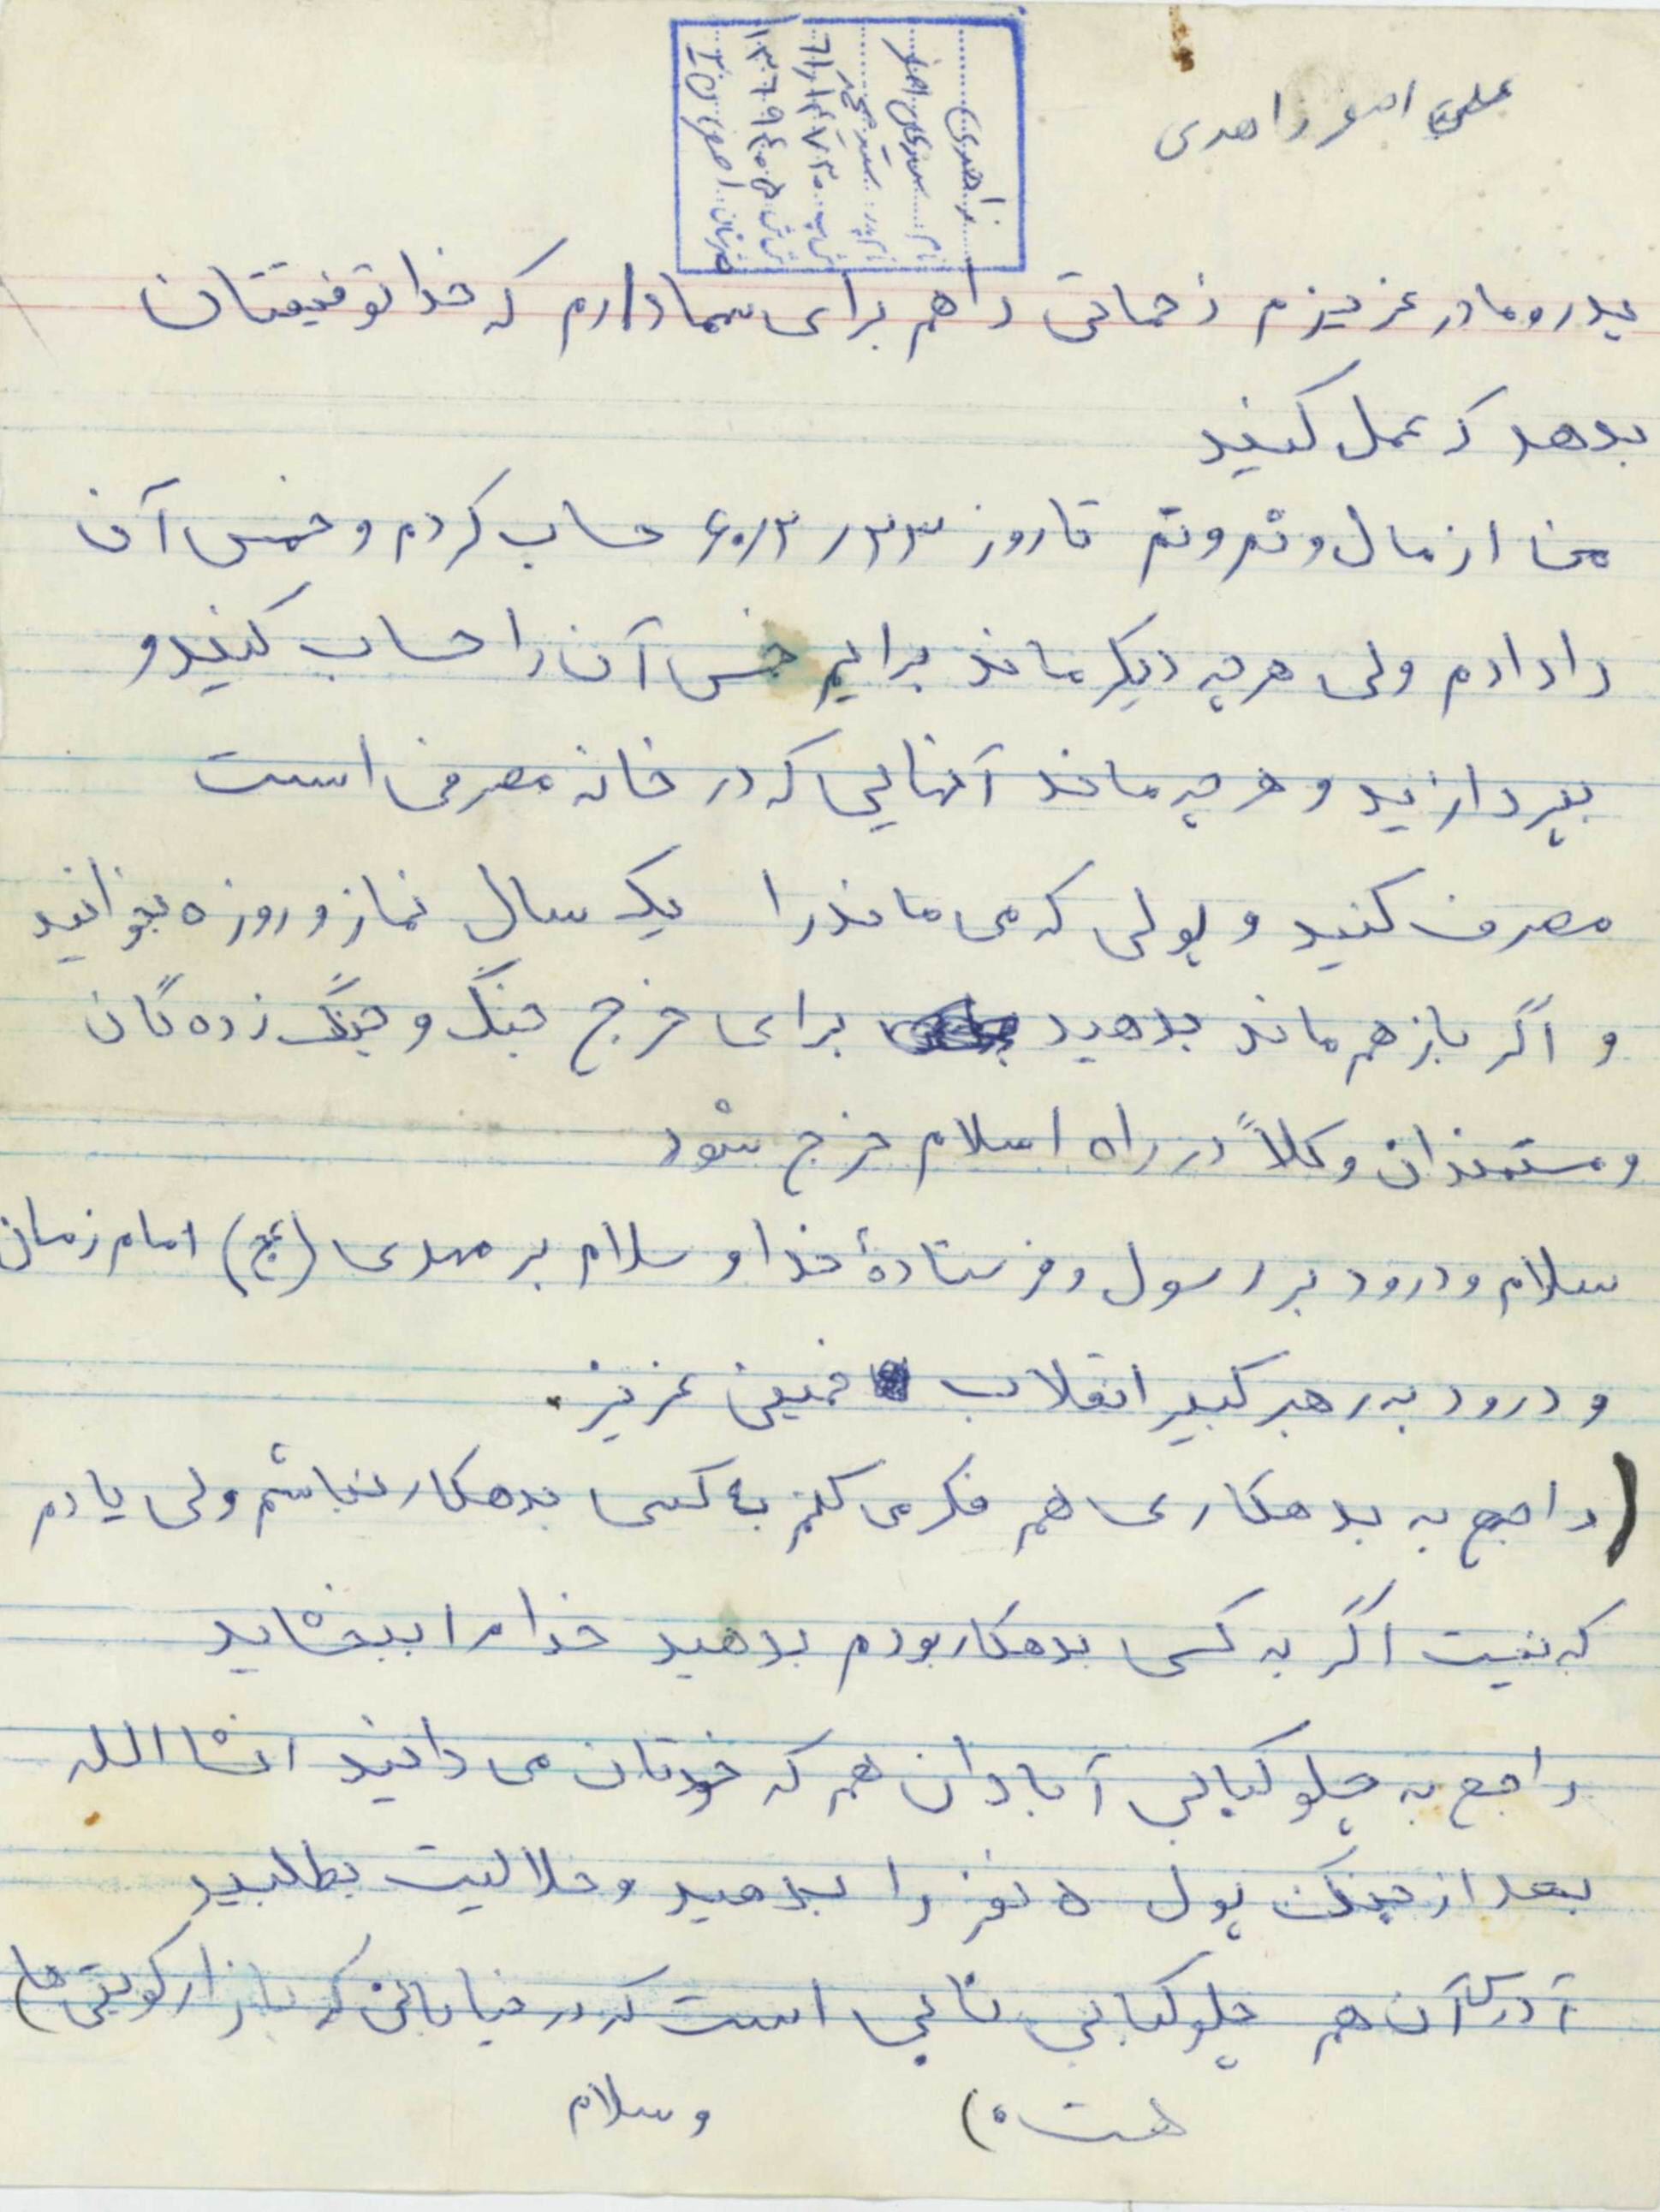 علی اصغر زاهدی
زاهدی
نام سیدعلی اصغر
نام پدر سید محمد
ش پ ۶۱/۱۴۷۳۰
ش ش ۱۳۶۹۴۰۵
شهرستان اصفهان
پدر و مادر عزیزم زحماتی را هم برای شما دارم که خدا توفیقتان
بدهد که عمل کنید
من از مال و ثروتم تا روز ۶۰/۳/۲۳ حساب کردم و خمس آن
را دادم ولی هرچه دیگر ماند برایم خمس آن را حساب کنید و
بپردازید و هرچه ماند آنهایی که در خانه مصرفی است
مصرف کنید و پولی که می ماند را یک سال نماز و روزه بخوانید
و اگر باز هم ماند بدهید برای خرج جنگ و جنگ زده گان
و مستمندان و کلاً در راه اسلام خرج شود
سلام و درود بر رسول و فرستادهٔ خدا و سلام بر مهدی (عج) امام زمان
و درود به رهبر کبیر انقلاب خمینی عزیز.
(راجع به بدهکاری هم فکر می کنم به کسی بدهکار نباشم ولی یادم
که نیست اگر به کسی بدهکار بودم بدهید خدا مرا ببخشاید
راجع به چلوکبابی آبادان هم که خودتان می دانید انشاالله
بعد از جنگ پول ۵ نفر را بدهید و حلالیت بطلبید
آدرس آن هم چلوکبابی نائبی است که در خیابانی که بازار کویتی ها)
هست.) وسلام